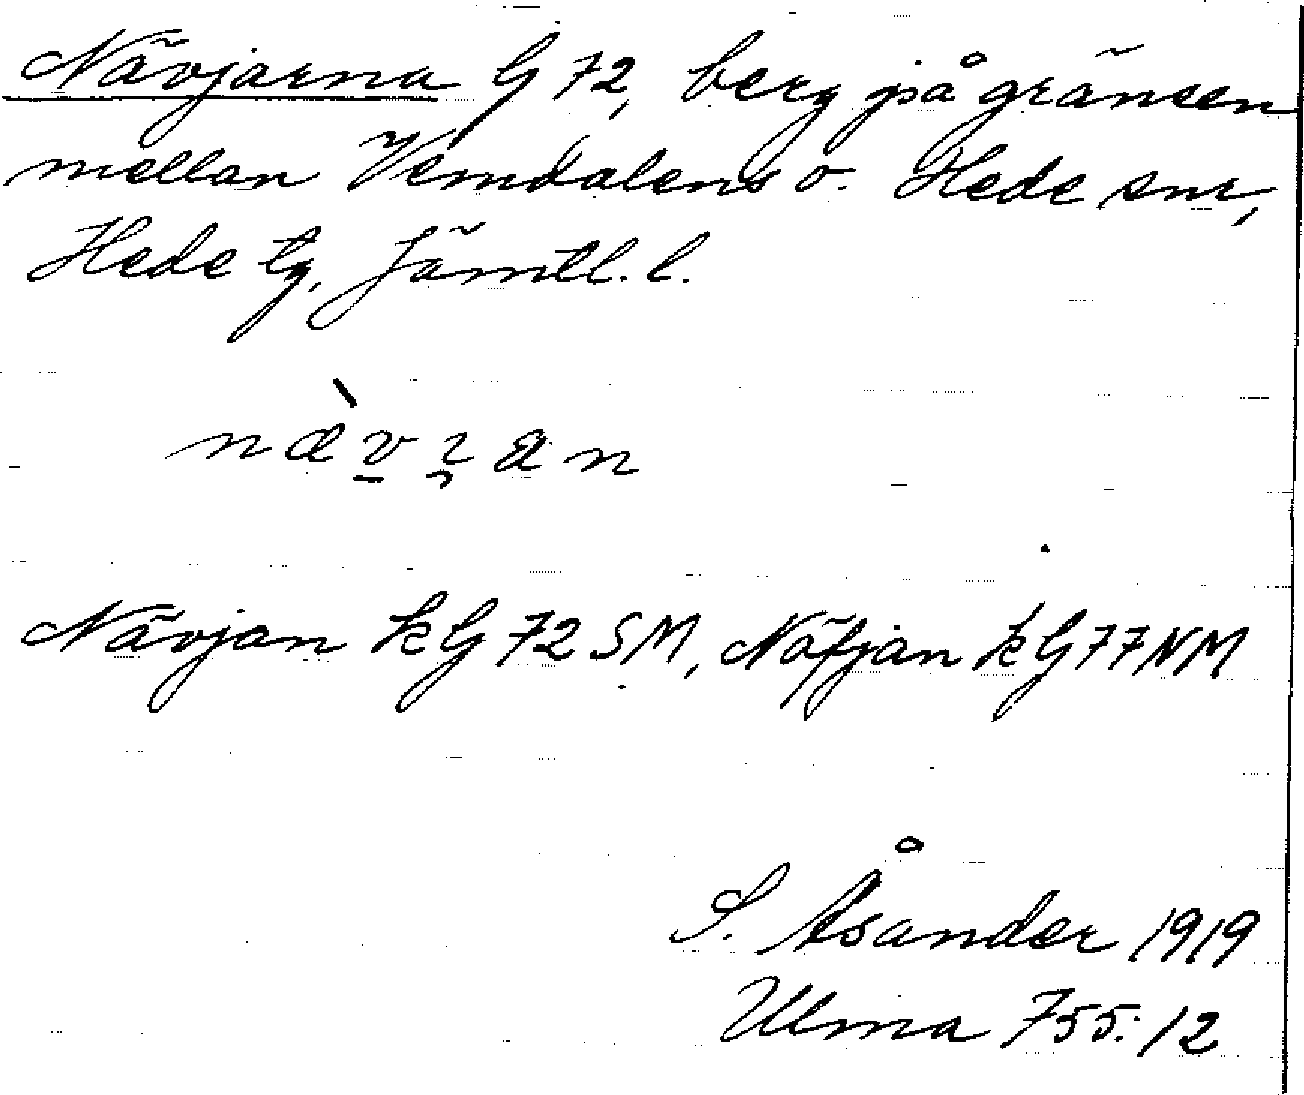 Nävjarna G 72, berg på gränsen
mellan Vemdalens o. Hede snr,
Hede tg, Jämtl. l.
Nävjan kG 72 SM, Näfjan kG 77 NM
S. Åsander 1919
Ulma 755:12